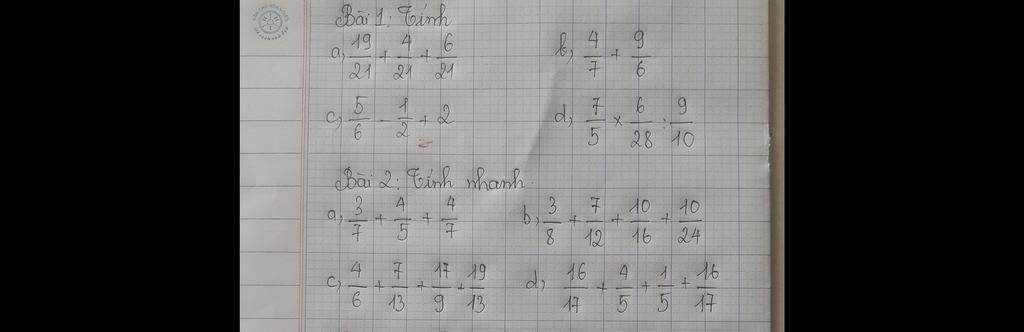 Bài 1: Tính
a, 19/21 + 4/21 + 6/21 b, 4/7 + 9/6
c, 5/6 - 1/2 + 2 d, 7/5 × 6/28 : 9/10
Bài 2: Tính nhanh.
a, 3/7 + 4/5 + 4/7 b, 3/8 + 7/12 + 10/16 + 10/24
c, 4/6 + 7/13 + 17/9 + 19/13 d, 16/17 + 4/5 + 1/5 + 16/17